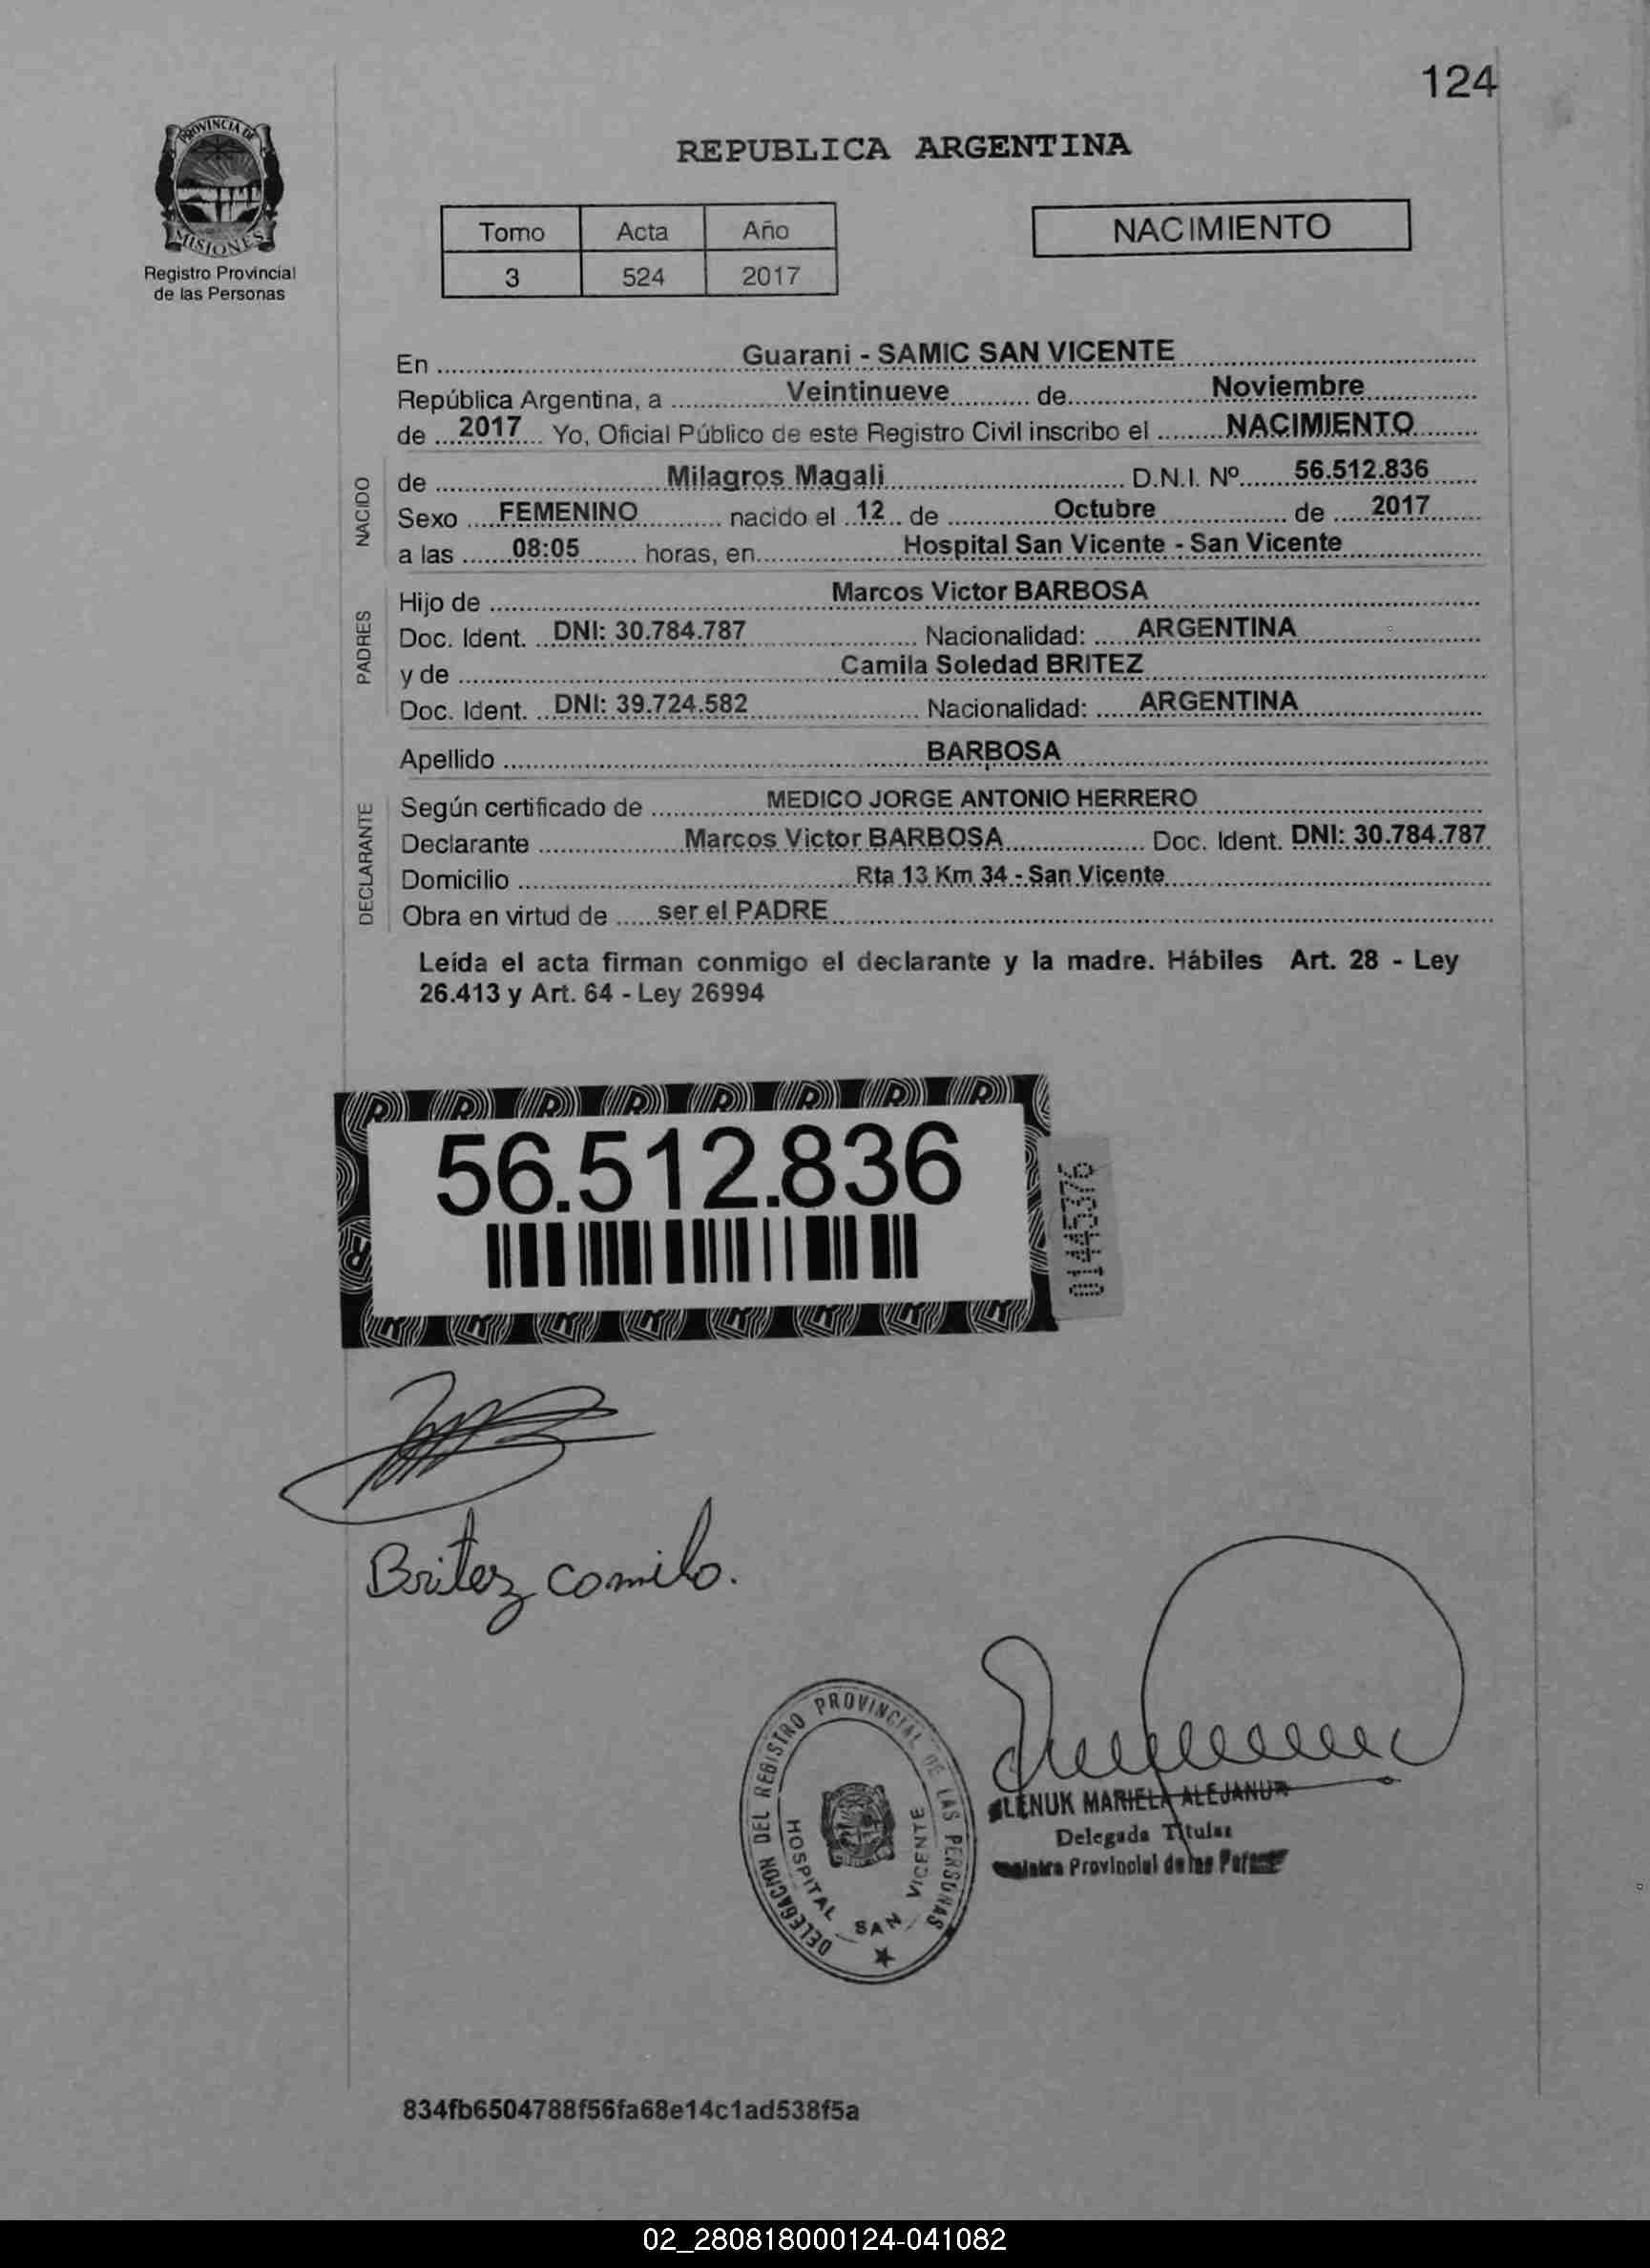 124
PROVINCIA DE
MISIONES
Registro Provincial
de las Personas
REPUBLICA ARGENTINA
Tomo Acta Año
3 524 2017
NACIMIENTO
En Guarani - SAMIC SAN VICENTE
República Argentina, a Veintinueve de Noviembre
de 2017 Yo, Oficial Público de este Registro Civil inscribo el NACIMIENTO
NACIDO
de Milagros Magali D.N.I. Nº 56.512.836
Sexo FEMENINO nacido el 12 de Octubre de 2017
a las 08:05 horas, en Hospital San Vicente - San Vicente
PADRES
Hijo de Marcos Victor BARBOSA
Doc. Ident. DNI: 30.784.787 Nacionalidad: ARGENTINA
y de Camila Soledad BRITEZ
Doc. Ident. DNI: 39.724.582 Nacionalidad: ARGENTINA
Apellido BARBOSA
DECLARANTE
Según certificado de MEDICO JORGE ANTONIO HERRERO
Declarante Marcos Victor BARBOSA Doc. Ident. DNI: 30.784.787
Domicilio Rta 13 Km 34 - San Vicente
Obra en virtud de ser el PADRE
Leída el acta firman conmigo el declarante y la madre. Hábiles Art. 28 - Ley
26.413 y Art. 64 - Ley 26994
56.512.836
01445376
Britez Camila.
DELEGACION DEL REGISTRO PROVINCIAL DE LAS PERSONAS
HOSPITAL SAN VICENTE
MARIELA
Delegada Titular
Provincial de las
834fb6504788f56fa68e14c1ad538f5a
02_280818000124-041082